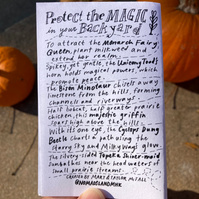 Protect the MAGIC
in your Backyard
To attract the Monarch Fairy
Queen, plant milkweed and
extend her realm.
Spikey, yet gentle, the Unicorn Toad's
horn holds magical powers, and
promote peace.
The Bison Minotaur chisels away
limestone from the hills, forming
channels and riverways.
Half bobcat, half greater prairie
chicken, this majestic griffin
soars high above the hills.
With its one eye, the Cyclops Dung
Beetle charts a path using the
starry sky and Milky Way's glow.
The silvery-sided Topeka Shiner-maid
sunbathes near the headwaters of
small prairie streams.
@NOMADSLANDMHK